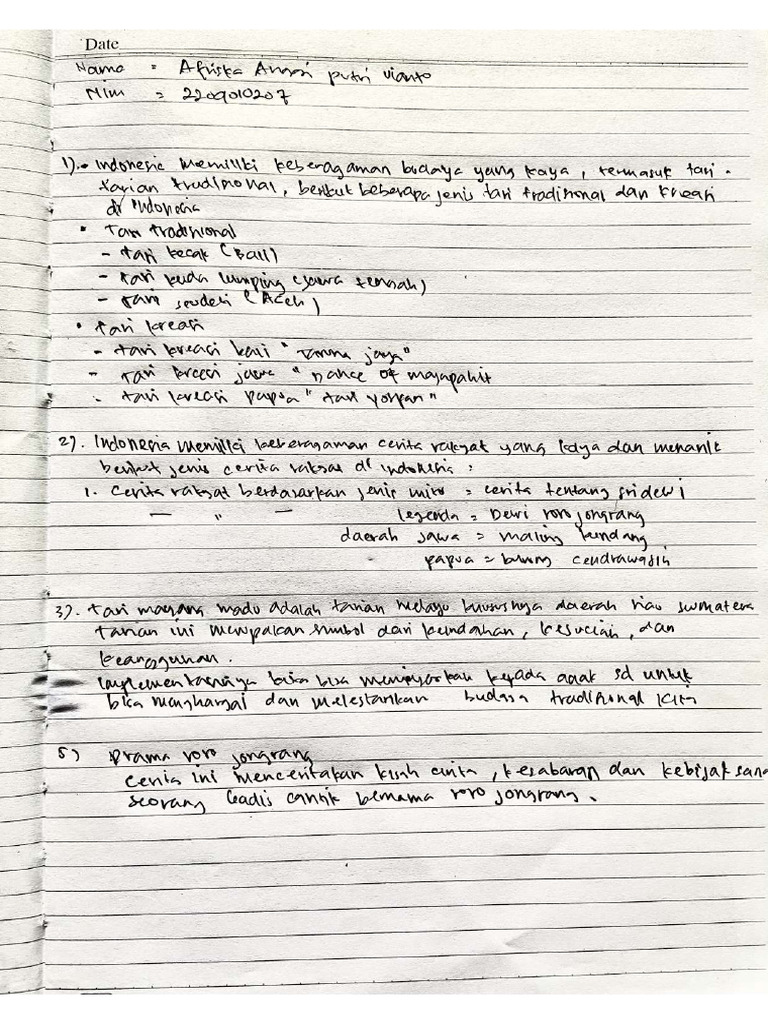 Date
Nama = Afriska Anggi putri vianto
Nim = 2209010207
1).- Indonesia memiliki keberagaman budaya yang kaya, termasuk tari-
tarian tradisional, berikut beberapa jenis tari tradisional dan kreasi
di indonesia
• Tari tradisional
- tari kecak (Bali)
- tari kuda lumping (jawa tengah)
- tari seudati (Aceh)
• tari kreasi
- tari kreasi bali " jaya"
- tari kreasi jawa " Dance of majapahit
- tari kreasi papua " tari yospan"
2). Indonesia memiliki keberagaman cerita rakyat yang kaya dan menarik
berikut jenis cerita rakyat di indonesia :
1. Cerita rakyat berdasarkan jenis mito = cerita tentang sri dewi
— " — legenda = Dewi roro jongrang
daerah jawa = maling kundang
papua = burung cendrawasih
3). tari mayang madu adalah tarian melayu khususnya daerah riau sumatera
tarian ini merupakan simbol dari keindahan, kesucian, dan
keanggunan.
implementasinya kita bisa mengajarkan kepada anak sd untuk
bisa menghargai dan melestarikan budaya tradisional kita
5) Drama roro jongrang
cerita ini menceritakan kisah cinta, kesabaran dan kebijaksana
seorang Gadis cantik bernama roro jongrang.